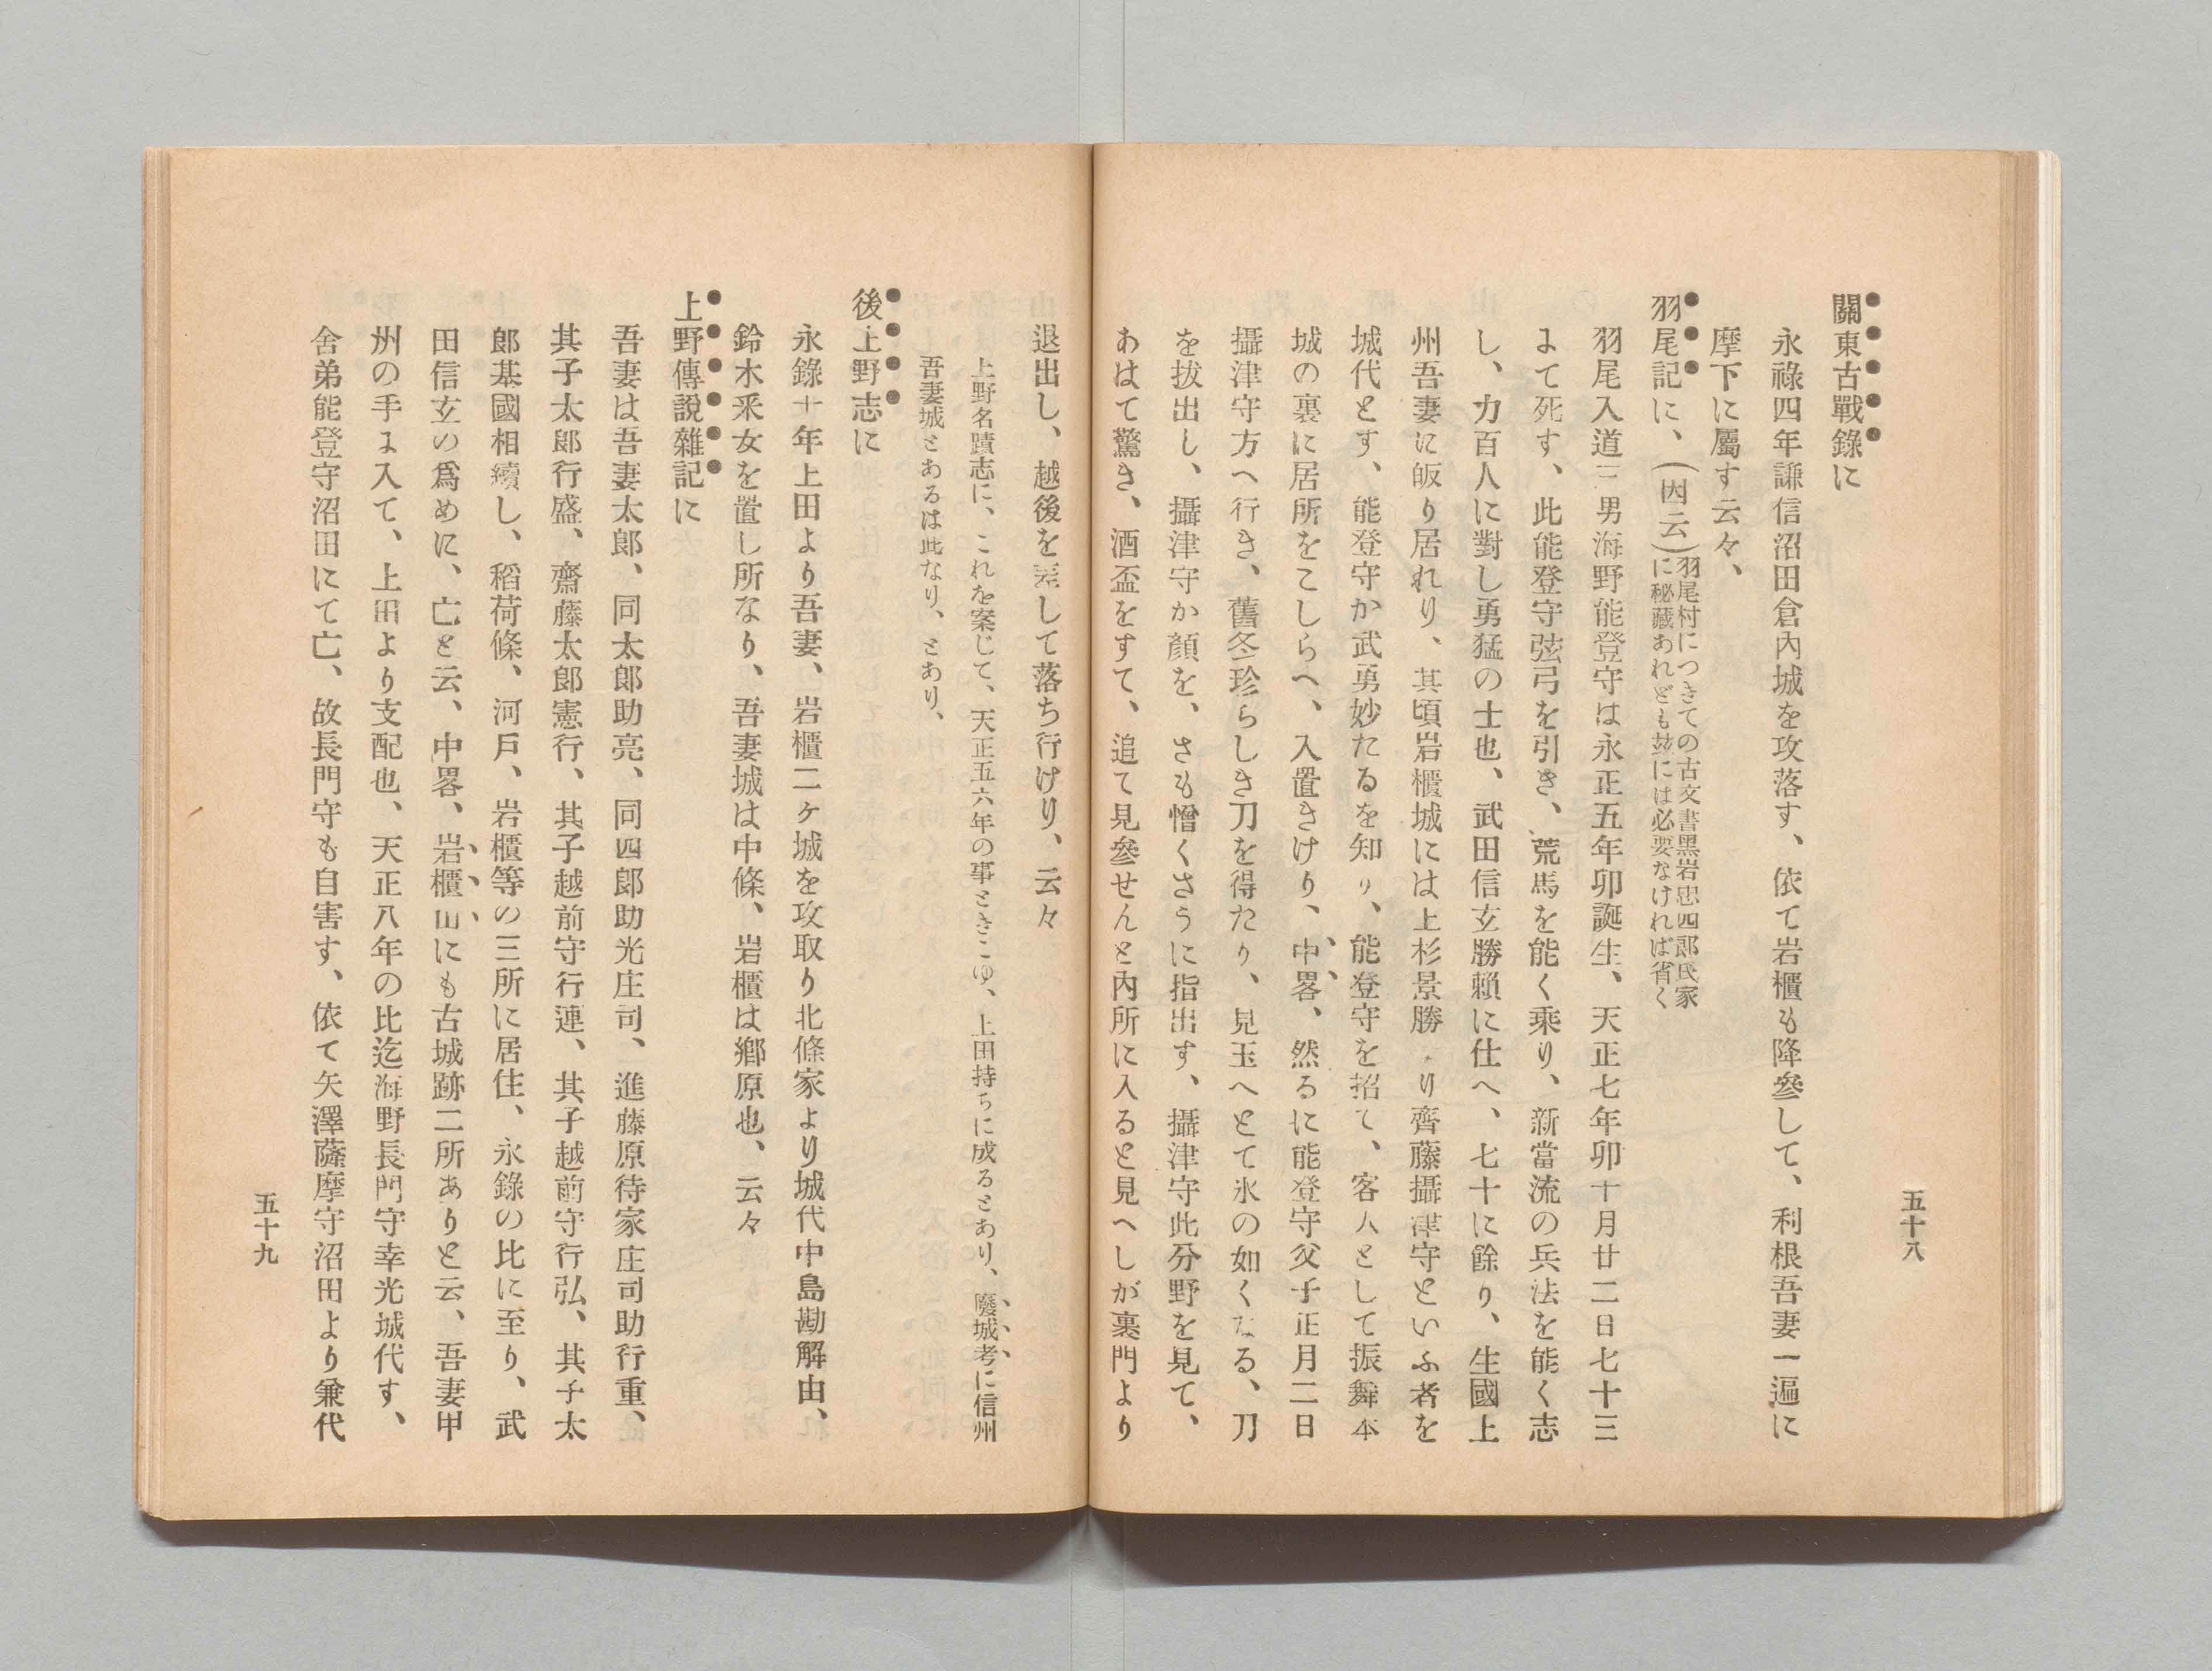 關東古戰錄に
永祿四年謙信沼田倉內城を攻落す、依て岩櫃も降參して、利根吾妻一遍に
摩下に屬す云々、
羽尾記に、(因云)羽尾村につきての古文書黑岩忠四郎氏家
に秘藏あれども玆には必要なければ省く
羽尾入道三男海野能登守は永正五年卯誕生、天正七年卯十月廿二日七十三
にて死す、此能登守弦弓を引き、荒馬を能く乘り、新當流の兵法を能く志
し、力百人に對し勇猛の士也、武田信玄勝賴に仕へ、七十に餘り、生國上
州吾妻に皈り居れり、其頃岩櫃城には上杉景勝より齊藤攝津守といふ者を
城代とす、能登守か武勇妙たるを知り、能登守を招て、客人として振舞本
城の裏に居所をこしらへ、入置きけり、中畧、然るに能登守父子正月二日
攝津守方へ行き、舊冬珍らしき刀を得たり、見玉へとて氷の如くなる、刀
を拔出し、攝津守か顏を、さも憎くさうに指出す、攝津守此分野を見て、
あはて驚き、酒盃をすて、追て見參せんと內所に入ると見へしが裏門より
五十八
退出し、越後を差して落ち行けり、云々
上野名蹟志に、これを案じて、天正五六年の事ときこゆ、上田持ちに成るとあり、廢城考に信州
吾妻城とあるは此なり、とあり、
後上野志に
永錄十年上田より吾妻、岩櫃二ケ城を攻取り北條家より城代中島勘解由、
鈴木釆女を置し所なり、吾妻城は中條、岩櫃は鄕原也、云々
上野傳說雜記に
吾妻は吾妻太郎、同太郎助亮、同四郎助光庄司、進藤原待家庄司助行重、
其子太郎行盛、齋藤太郎憲行、其子越前守行連、其子越前守行弘、其子太
郎基國相續し、稻荷條、河戶、岩櫃等の三所に居住、永錄の比に至り、武
田信玄の爲めに、亡と云、中畧、岩櫃山にも古城跡二所ありと云、吾妻甲
州の手に入て、上田より支配也、天正八年の比迄海野長門守幸光城代す、
舍弟能登守沼田にて亡、故長門守も自害す、依て矢澤薩摩守沼田より兼代
五十九